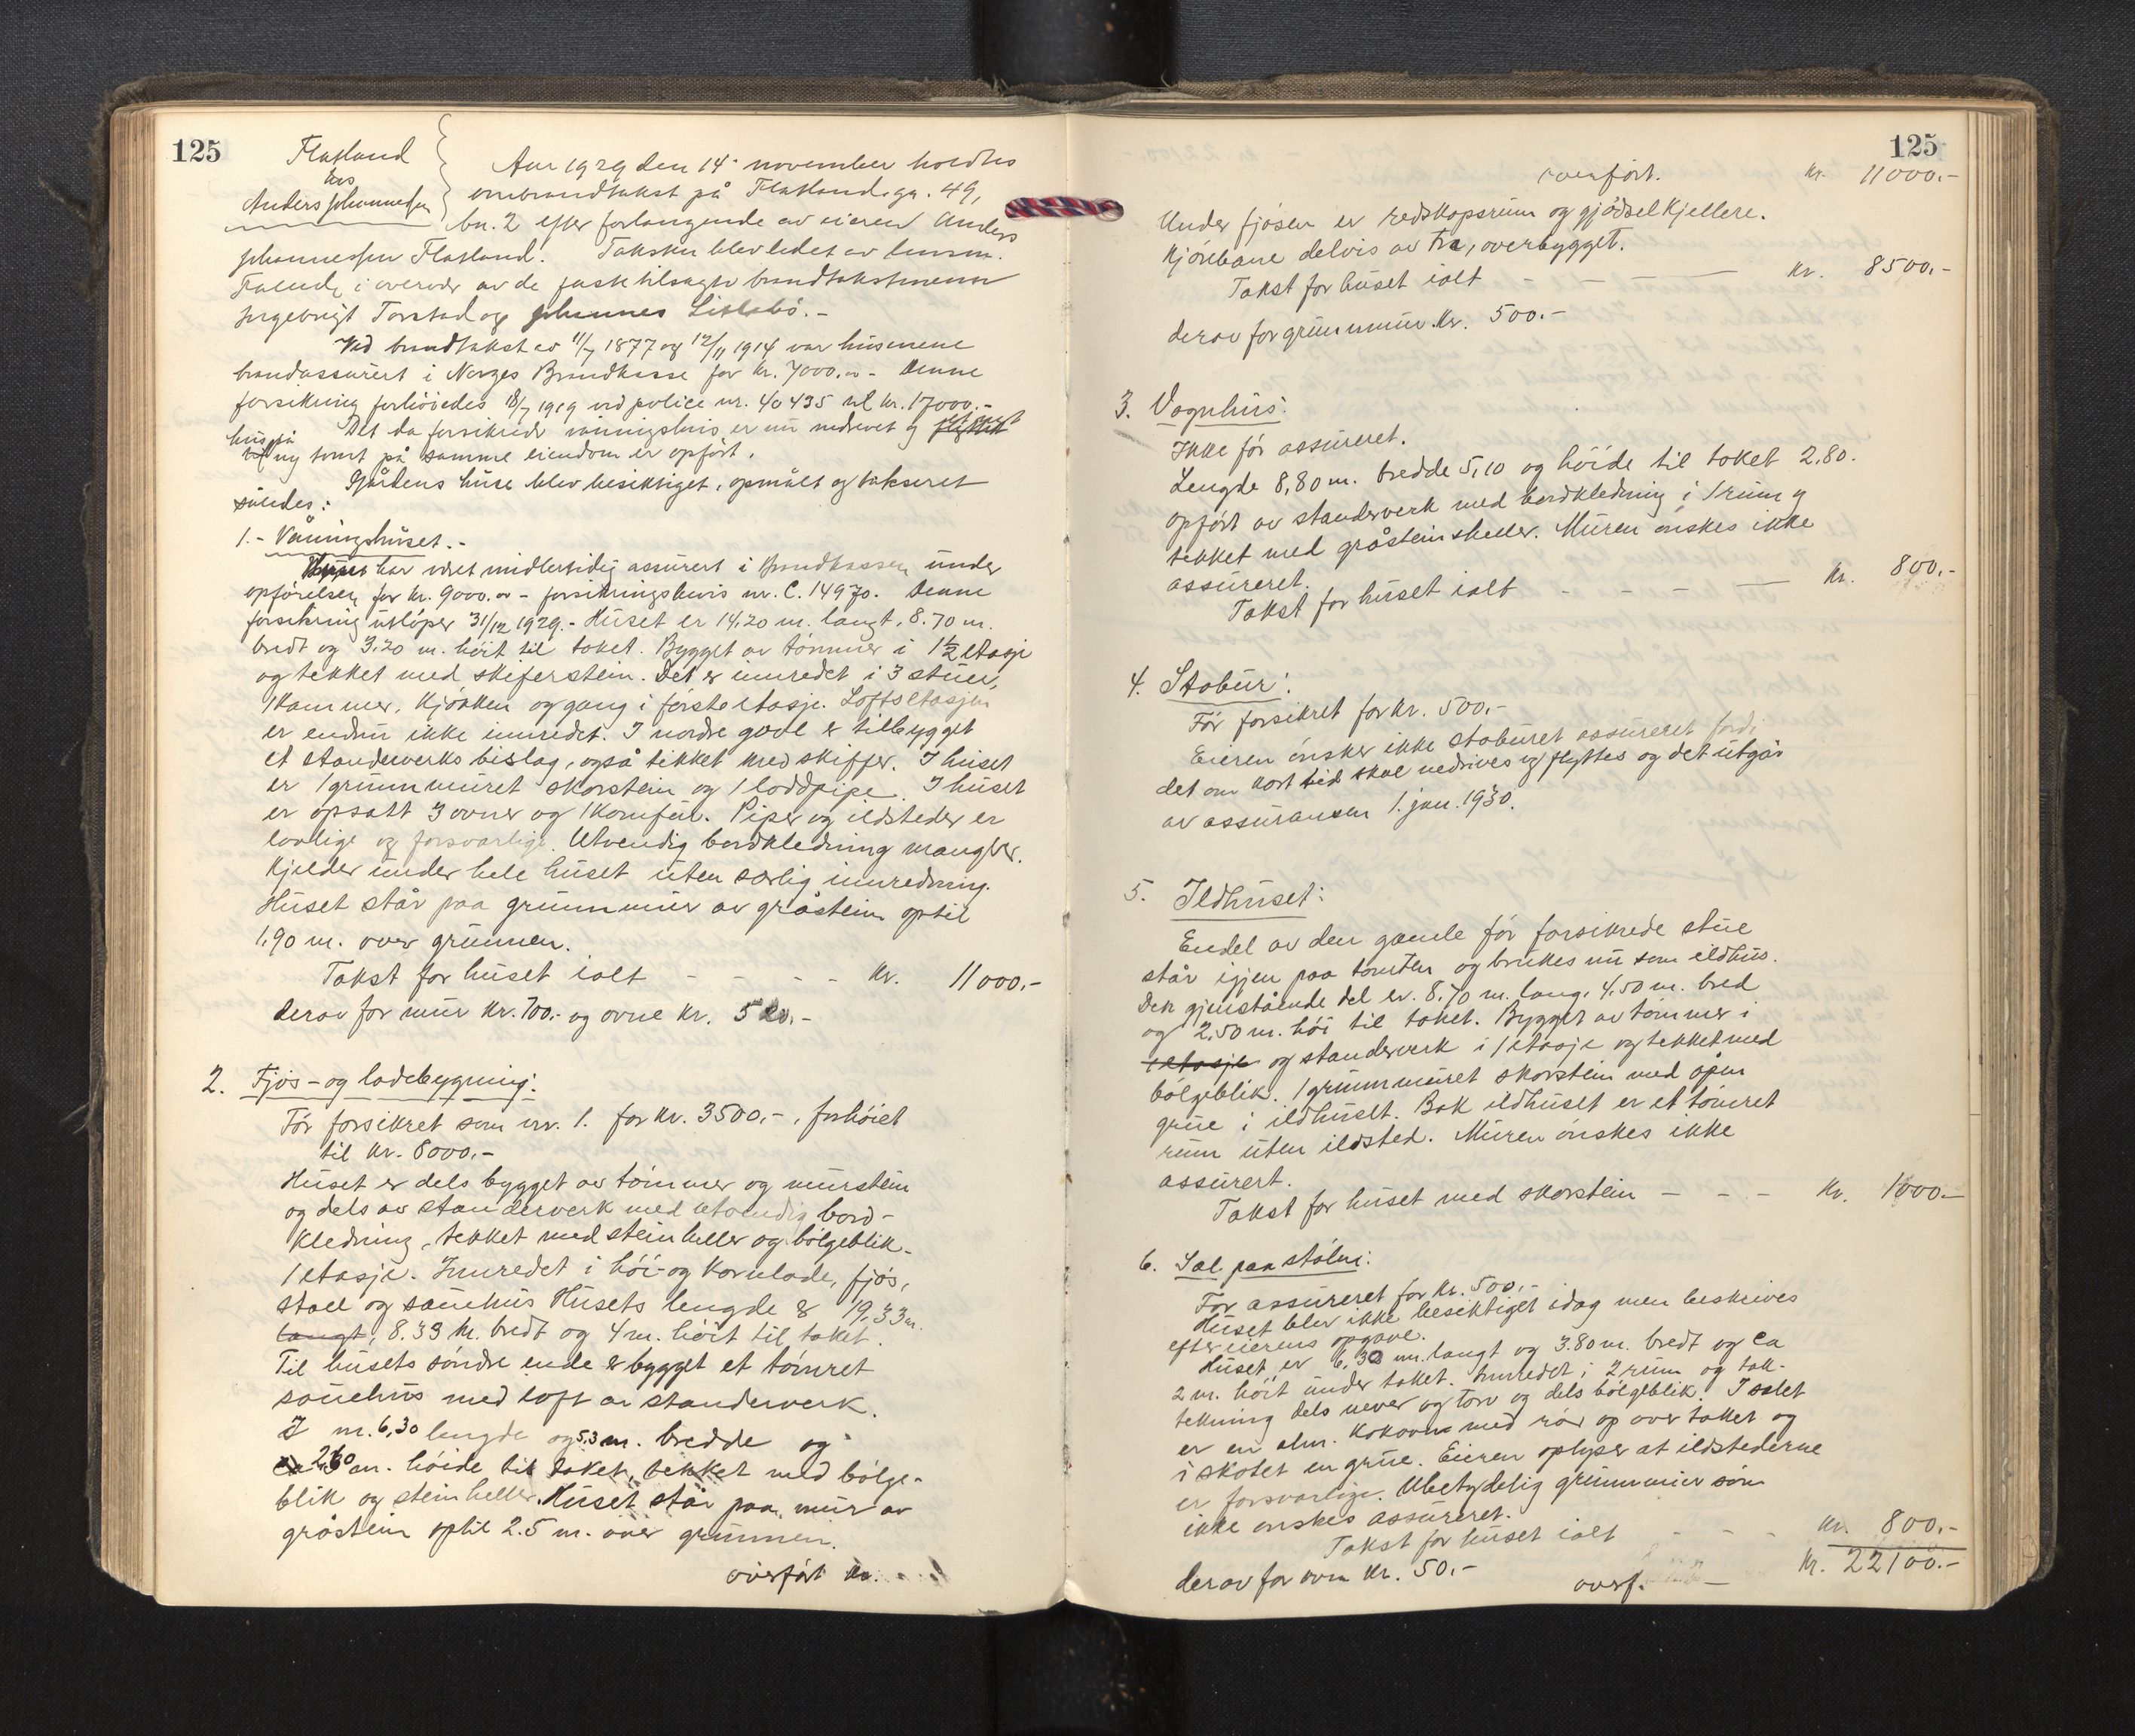 125
Flatland
hos
Anders Johannessen
Aar 1929 den 14. november holdtes
ombrandtakst på Flatland, gn. 49,
bn. 2 efter forlangende av eieren Anders
Johannessen Flatland. Taksten blev ledet av lensm.
i overvær av de fast tilsagte brandtakstmenn
Ingebrigt Torstad og Johannes Litlabö.-
Ved brandtakst av 11/7 1877 og 12/11 1914 var husenene
brandassurert i Norges Brandkasse for kr. 7000.00 - Denne
forsikring forhöiedes 18/7 1919 ved police nr. 40435 til kr. 17000.-
Det da forsikrede våningshus er nu nedrevet og flyttet
hus på
til ny tomt på samme eiendom er opfört.
Gårdens huse blev besiktiget, opmålt og takseret
således:
1.- Våningshuset.-
Huset har vært midlertidig assurert i Brandkassen under
opförelsen for kr. 9000.00 - forsikringsbevis nr. C. 14970. Denne
forsikring utlöper 31/12 1929.- Huset er 14,20 m. langt, 8.70 m.
bredt og 3.20 m. höit til taket. Bygget av tömmer i 1½ etasje
og tekket med skiferstein. Det er innredet i 3 stuer,
1 kammer, kjökken og gang i förste etasje. Loftsetasjen
er endnu ikke innredet. I nordre gavl er tilbygget
et standerverks bislag, også tekket med skiffer. I huset
er 1 grunnmuret skorstein og 1 loddpipe. I huset
er opsatt 3 ovner og 1 komfur. Piper og ildsteder er
lovlige og forsvarlige. Utvendig bordkledning mangler.
Kjelder under hele huset uten særlig innredning.
Huset står paa grunnmur av gråstein optil
1,90 m. over grunnen.
Takst for huset ialt - - - - kr. 11000.-
Derav for mur kr. 700.- og ovne kr. 500.-
2. Fjös- og ladebygning:
För forsikret som nr. 1. for kr. 3500.-, forhöiet
til kr. 8000.-
Huset er dels bygget av tömmer og murstein
og dels av standerverk med utvendig bord-
kledning, tekket med steinheller og bölgeblik.
1 etasje. Innredet i höi- og kornlade, fjös,
stall og sauehus Husets lengde er 19,33 m.
langt, 8.39 m. bredt og 4 m. höit til taket.
Til husets söndre ende er bygget et tömret
sauehus med loft av standerverk.
I m. 6,30 lengde og 5,3 m. bredde og
ca 2,60 m. höide til taket, tekket med bölge-
blik og steinheller. Huset står paa mur av
gråstein optil 2.5 m. over grunnen.
overfört kr.
125
overfört. kr. 11000.-
Under fjösen er redskapsrum og gjödselkjellere.
Kjörebane delvis av tre, overbygget.
Takst for huset ialt - - - kr. 8500.-
derav for grunnmur kr. 500.-
3. Vognhus:
Ikke för assureret.
Lengde 8,80 m. bredde 5,10 og höide til taket 2,80.
opfört av standerverk med bordkledning i 1 rum og
tekket med gråsteinsheller. Muren önskes ikke
assureret.
Takst for huset ialt - - - - kr. 800.-
4. Stabur:
För forsikret for kr. 500.-
Eieren önsker ikke staburet assureret fordi
det om kort tid skal nedrives og flyttes og det utgår
av assuransen 1. jan. 1930.
5. Ildhuset:
Endel av den gamle för forsikrede stue
står igjen paa tomten og brukes nu som ildhus.
Den gjenstående del er 8,70 m. lang, 4,50 m. bred
og 2,50 m. höi til taket. Bygget av tömmer i
1 etasje og standerverk i 1 etasje og tekket med
bölgeblik. 1 grunnmuret skorstein med åpen
grue i ildhuset. Bak ildhuset er et tömret
rum uten ildsted. Muren önskes ikke
assurert.
Takst for huset med skorstein - - - kr. 1000.-
6. Sal paa stölen:
För assureret for kr. 500.-
Huset blev ikke besiktiget idag men beskrives
efter eierens opgave.
Huset er 6,30 m. langt og 3.80 m. bredt og ca
2 m. höit under taket. Innredet i 2 rum og tak-
tekning dels never og torv og dels bölgeblik. I selet
er en alm. kokovn med rör op over taket og
i skotet en grue. Eieren oplyser at ildstederne
er forsvarlige. Ubetydelig grunnmur som
ikke önskes assureret.
Takst for huset ialt - - - kr. 800.-
derav for ovn kr. 50.- overf. - kr. 22100.-